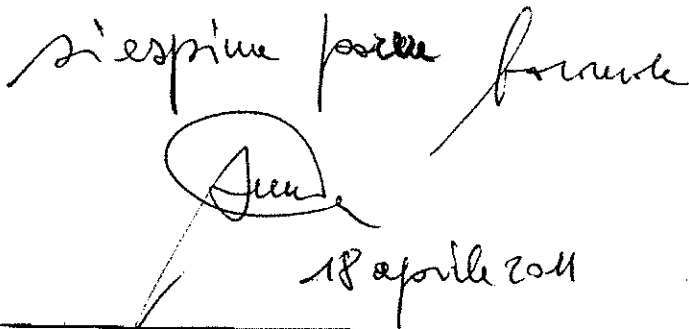 si esprime parere favorevole
18 aprile 2011